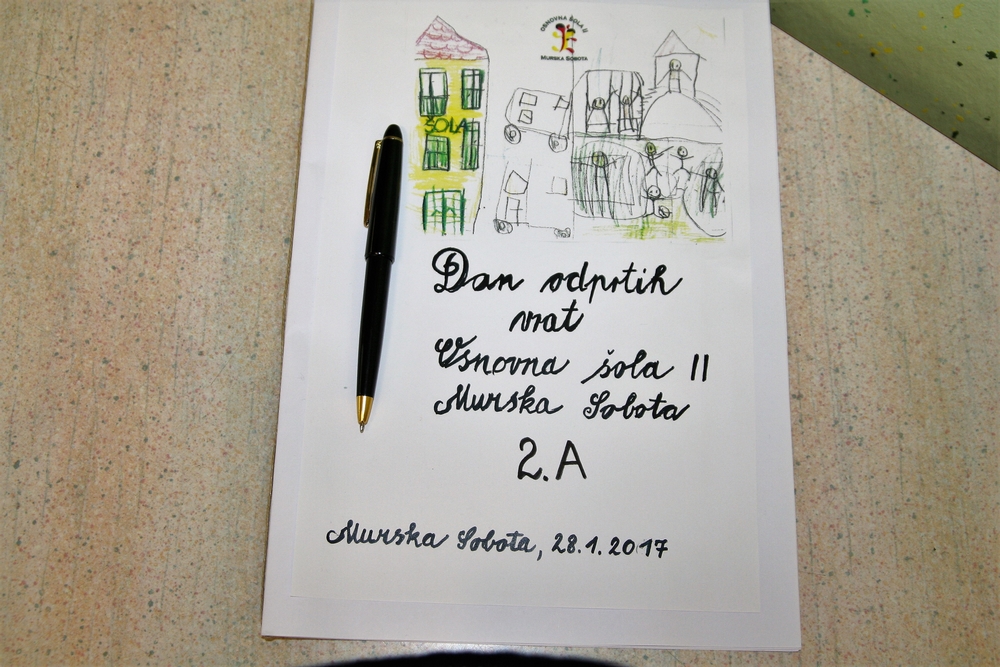 OSNOVNA ŠOLA II
MURSKA SOBOTA
ŠOLA
Dan odprtih
vrat
Osnovna šola II
Murska Sobota
2.A
Murska Sobota, 28.1.2017